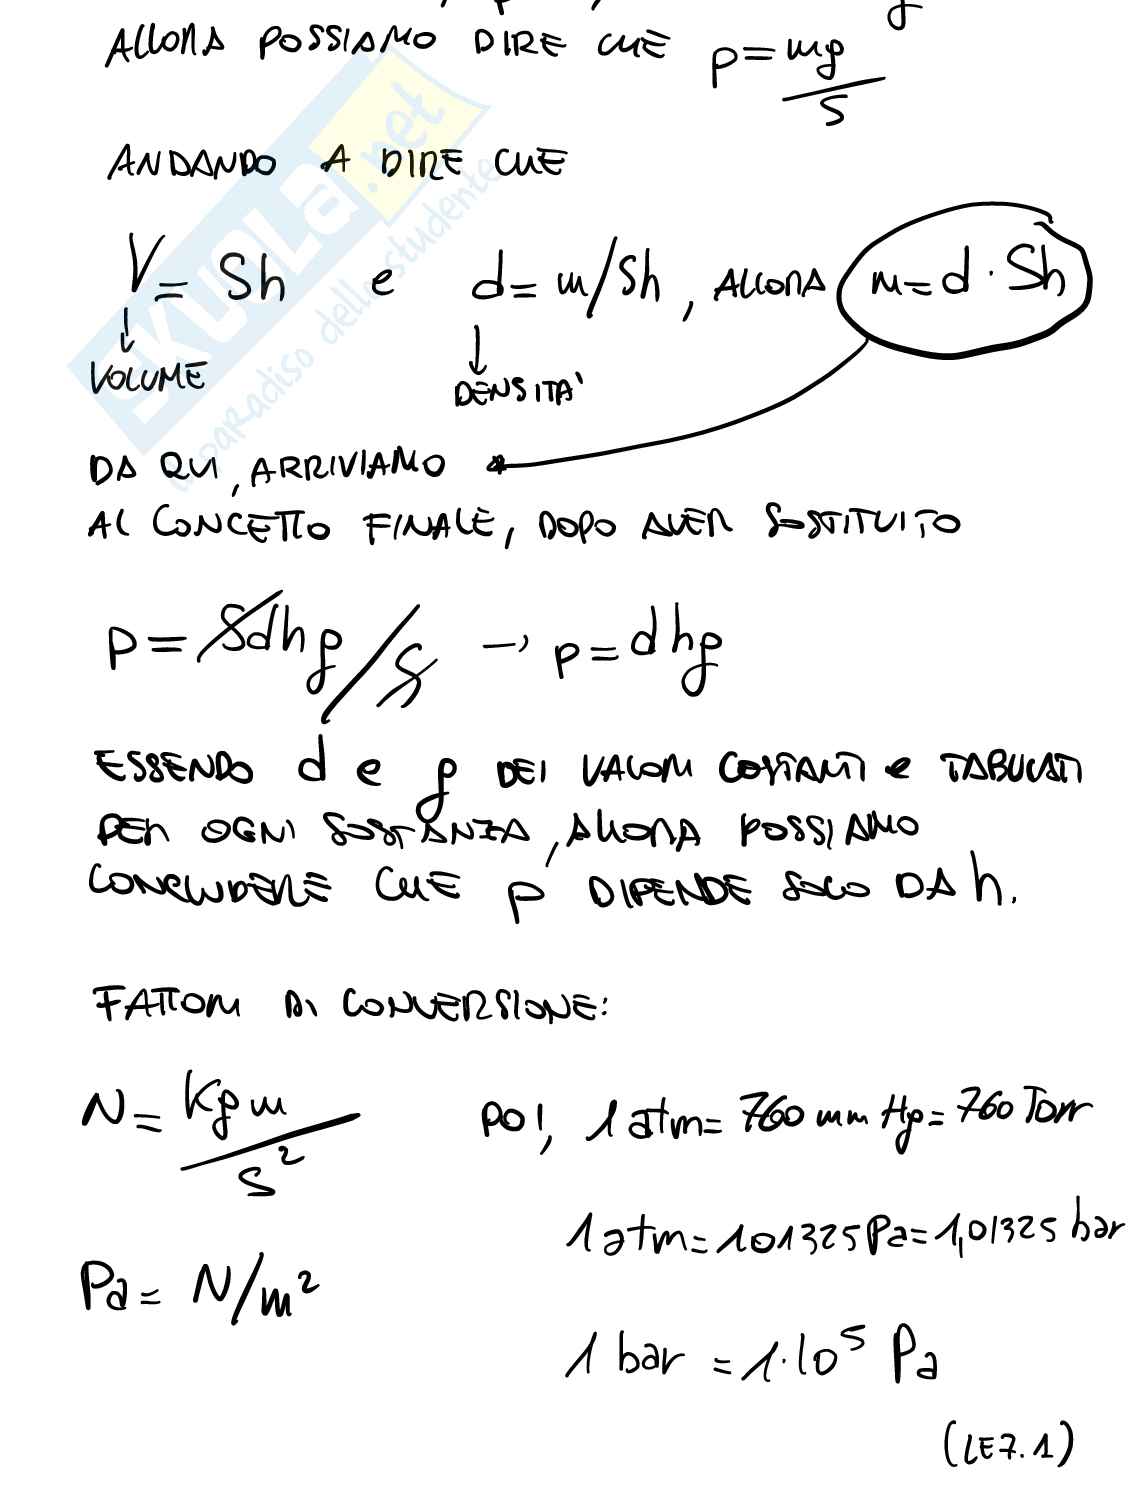 ALLORA POSSIAMO DIRE CHE p = mg/S
ANDANDO A DIRE CHE
V = Sh e d = m/Sh, ALLORA m = d · Sh
VOLUME DENSITA'
DA QUI, ARRIVIAMO
AL CONCETTO FINALE, DOPO AVER SOSTITUITO
p = Sdhg/S → p = dhg
ESSENDO d e g DEI VALORI COSTANTI e TABULATI
PER OGNI SOSTANZA, ALLORA POSSIAMO
CONCLUDERE CHE p DIPENDE SOLO DA h.
FATTORI DI CONVERSIONE:
N = Kg m/s² POI, 1 atm = 760 mm Hg = 760 Torr
1 atm = 101325 Pa = 1,01325 bar
Pa = N/m²
1 bar = 1·10⁵ Pa
(LEZ. 1)
SKUOLA.net
il paradiso dello studente